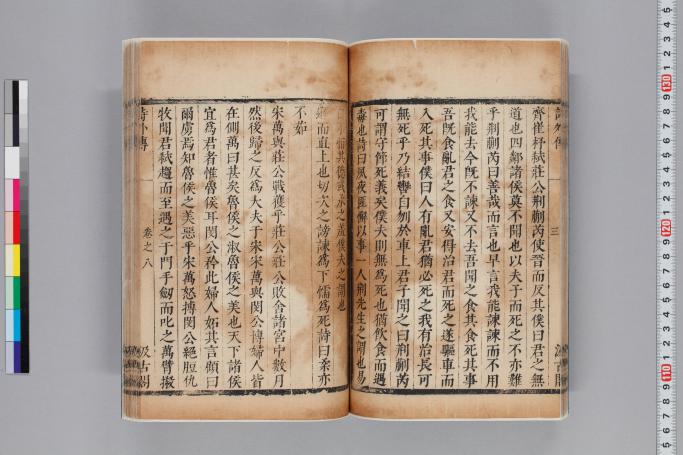 詩外傳 三 汲古閣
齊崔杼弑莊公荆蒯芮使晉而反其僕曰君之無
道也四鄰諸侯莫不聞也以夫子而死之不亦難
乎荆蒯芮曰善哉而言也早言我能諫諫而不用
我能去今既不諫又不去吾聞之食其食死其事
吾既食亂君之食又安得治君而死之遂驅車而
入死其事僕曰人有亂君猶必死之我有治長可
無死乎乃結轡自刎於車上君子聞之曰荆蒯芮
可謂守節死義矣僕夫則無爲死也猶飲食而遇
毒也詩曰夙夜匪懈以事一人荆先生之謂也易
曰不恒其德或承之羞僕夫之謂也
遜而直上也切次之謗諫爲下懦爲死詩曰柔亦
不茹
宋萬與莊公戰獲乎莊公莊公敗舍諸宮中數月
然後歸之反爲大夫于宋宋萬與閔公博婦人皆
在側萬曰甚矣魯侯之淑魯侯之美也天下諸侯
宜爲君者惟魯侯耳閔公矜此婦人妬其言顧曰
爾虜焉知魯侯之美惡乎宋萬怒搏閔公絕脰仇
牧聞君弑趨而至遇之于門手劒而叱之萬臂摋
詩外傳 卷之八 汲古閣